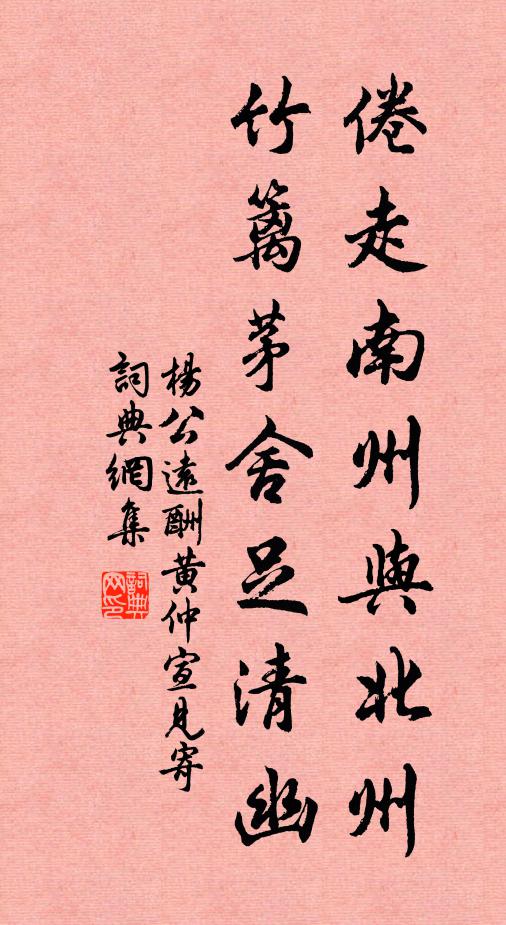 倦走南州與北州
竹籬茅舍足清幽
楊公遠酬黃仲宣見寄
詞典網集
詞典网印